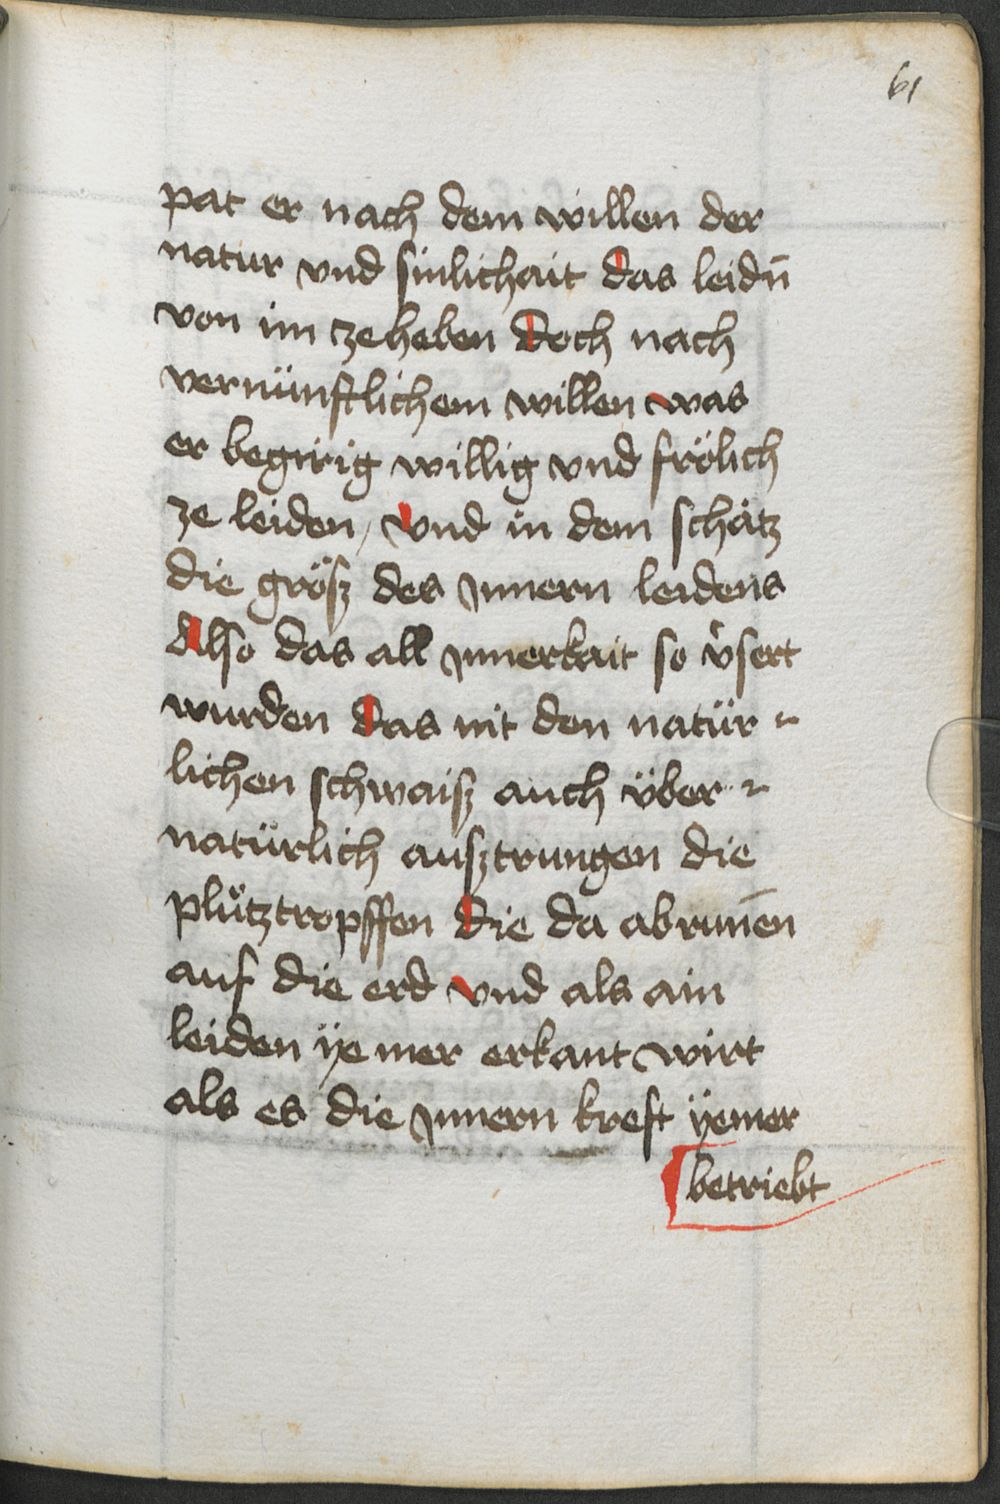 61
pat er nach dem willen der
natur vnd sinlichait das leidn̄
von im ze heben doch nach
vernünftlichem willen was
er begirig willig vnd frölich
ze leiden / vnd in dem schätz
die größ des Jnnern leidens
Also das all Jnnerkait so v̊sert
wurden das mit den natür
lichen schwaisz auch über
natürlich ausztrungen die
plůtztropffen die da abrun̄en
auf die erd vnd als ain
leiden ÿe mer erkant wirt
als es die Jnnern kreft ÿemer
betriebt